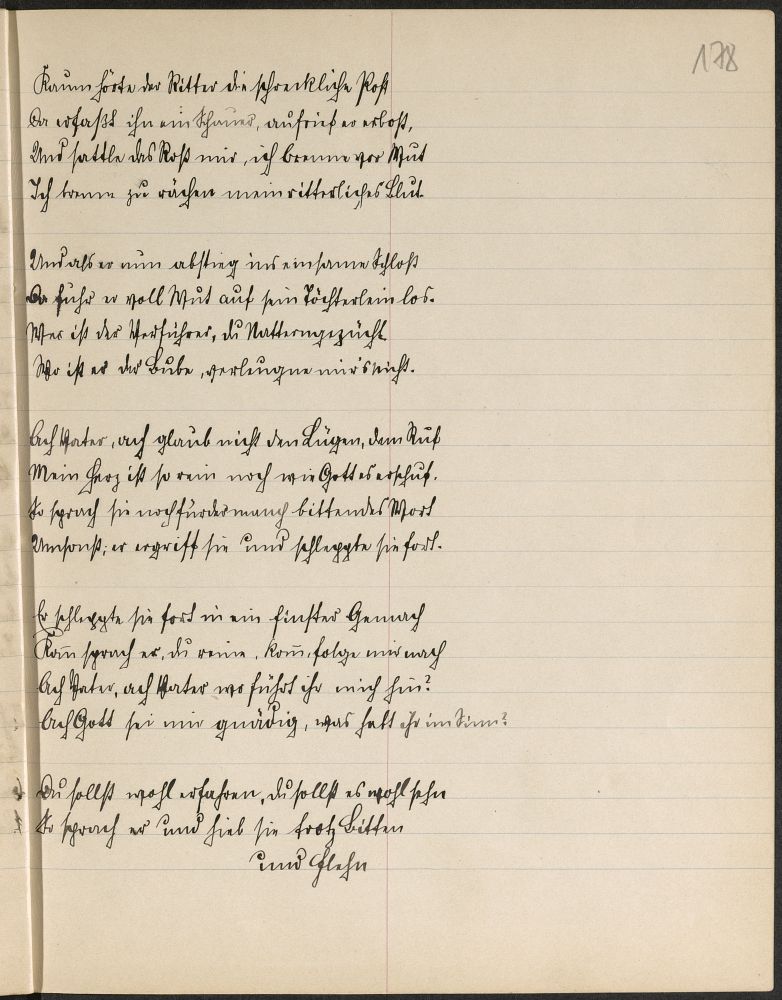 178
Kaum hörte der Ritter die schreckliche Post
Da erfaßt ihn ein Schauer, aufrief er erbost,
Und sattle das Roß mir, ich brenne vor Wut
Ich brenne zu rächen mein ritterliches Blut.
Und als er nun abstieg ins einsame Schloß
Da fuhr er voll Wut auf sein Töchterlein los.
Wer ist der Verführer, du Natterngezücht
Wo ist er der Bube, verleugne mir's nicht.
Ach Vater, ach glaub nicht den Lügen, dem Ruf
Mein Herz ist so rein noch wie Gott es erschuf.
So sprach sie noch fürder manch bittendes Wort
Umsonst; er ergriff sie und schleppte sie fort.
Er schleppte sie fort in ein finster Gemach
Kom̅ sprach er, du reine, kom̅, folge mir nach
Ach Vater, ach Vater wo führt ihr mich hin?
Ach Gott sei mir gnädig, was habt ihr im Sinn?
Du sollst wohl erfahren, du sollst es wohl sehn
So sprach er und hieb sie trotz Bitten
und Flehn